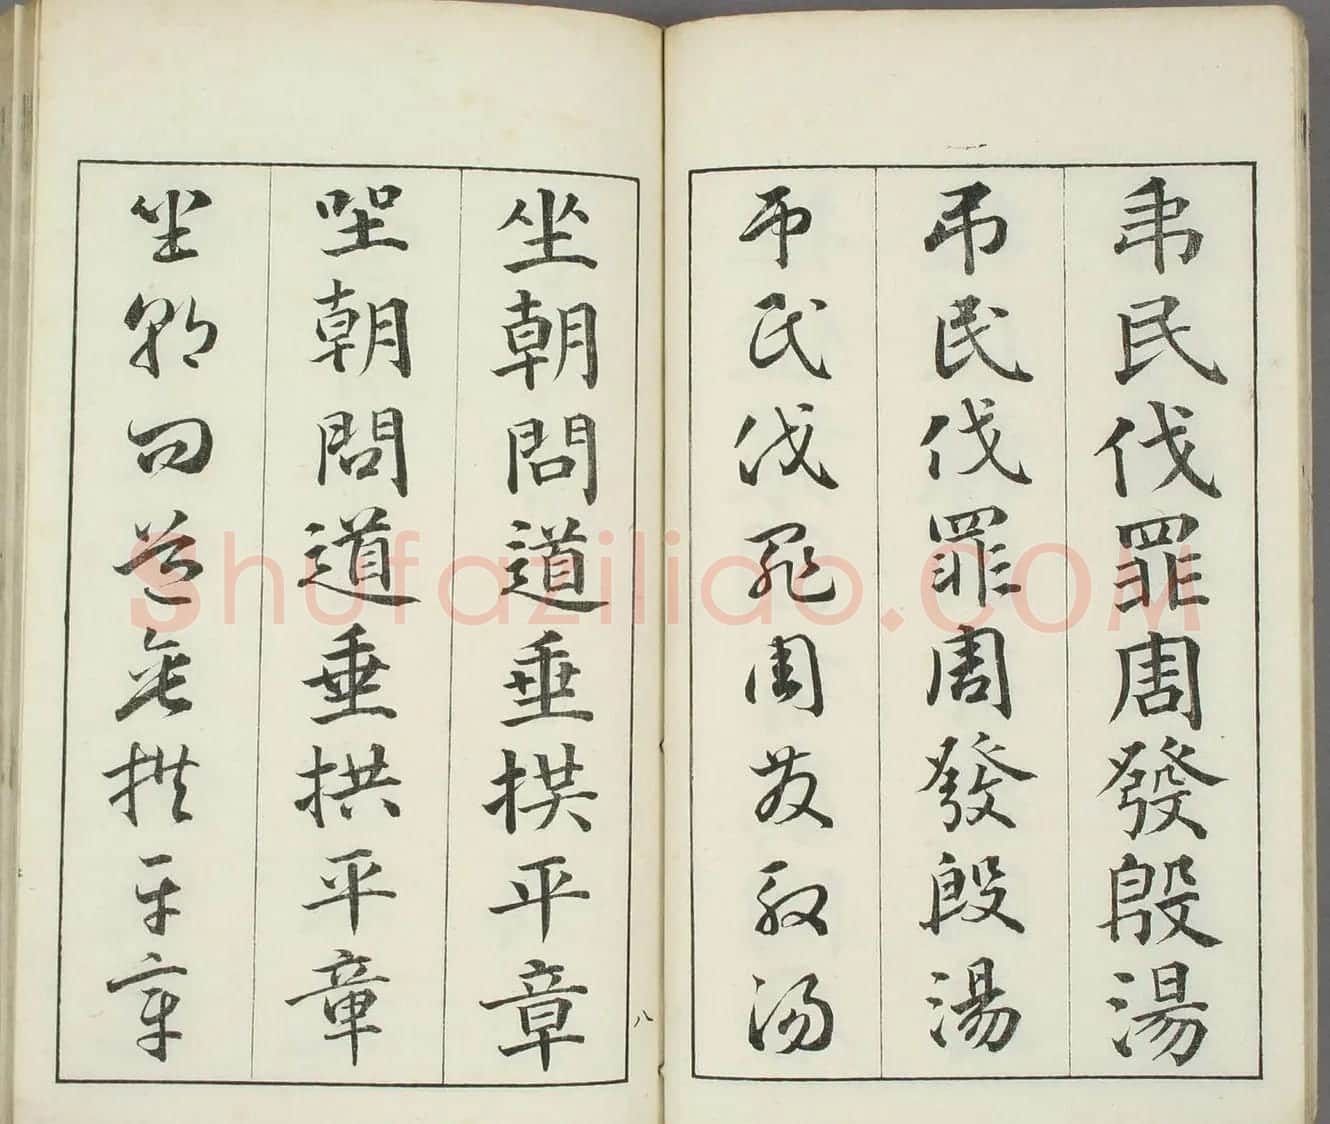 弔民伐罪周發殷湯
弔民伐罪周發殷湯
弔民伐罪周發殷湯
坐朝問道垂拱平章
坐朝問道垂拱平章
坐朝問道垂拱平章
八
Shufaziliao.COM